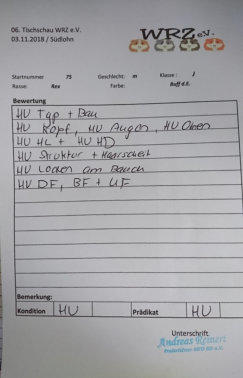 06. Tischschau WRZ e.V.
03.11.2018 / Südlohn
WRZ e.V.
Startnummer 75 Geschlecht: m Klasse: J
Rasse: Rex Farbe: Buff d.E.
Bewertung
HV Typ + Bau
HV Kopf, HV Augen, HV Ohren
HV HL + HV HD
HV Struktur + Haarscheit
HV Locken am Bauch
HV DF, BF + UF
Bemerkung:
Kondition HV Prädikat HV
Unterschrift
Andreas Reinert
Preisrichter MFD RD e.V.